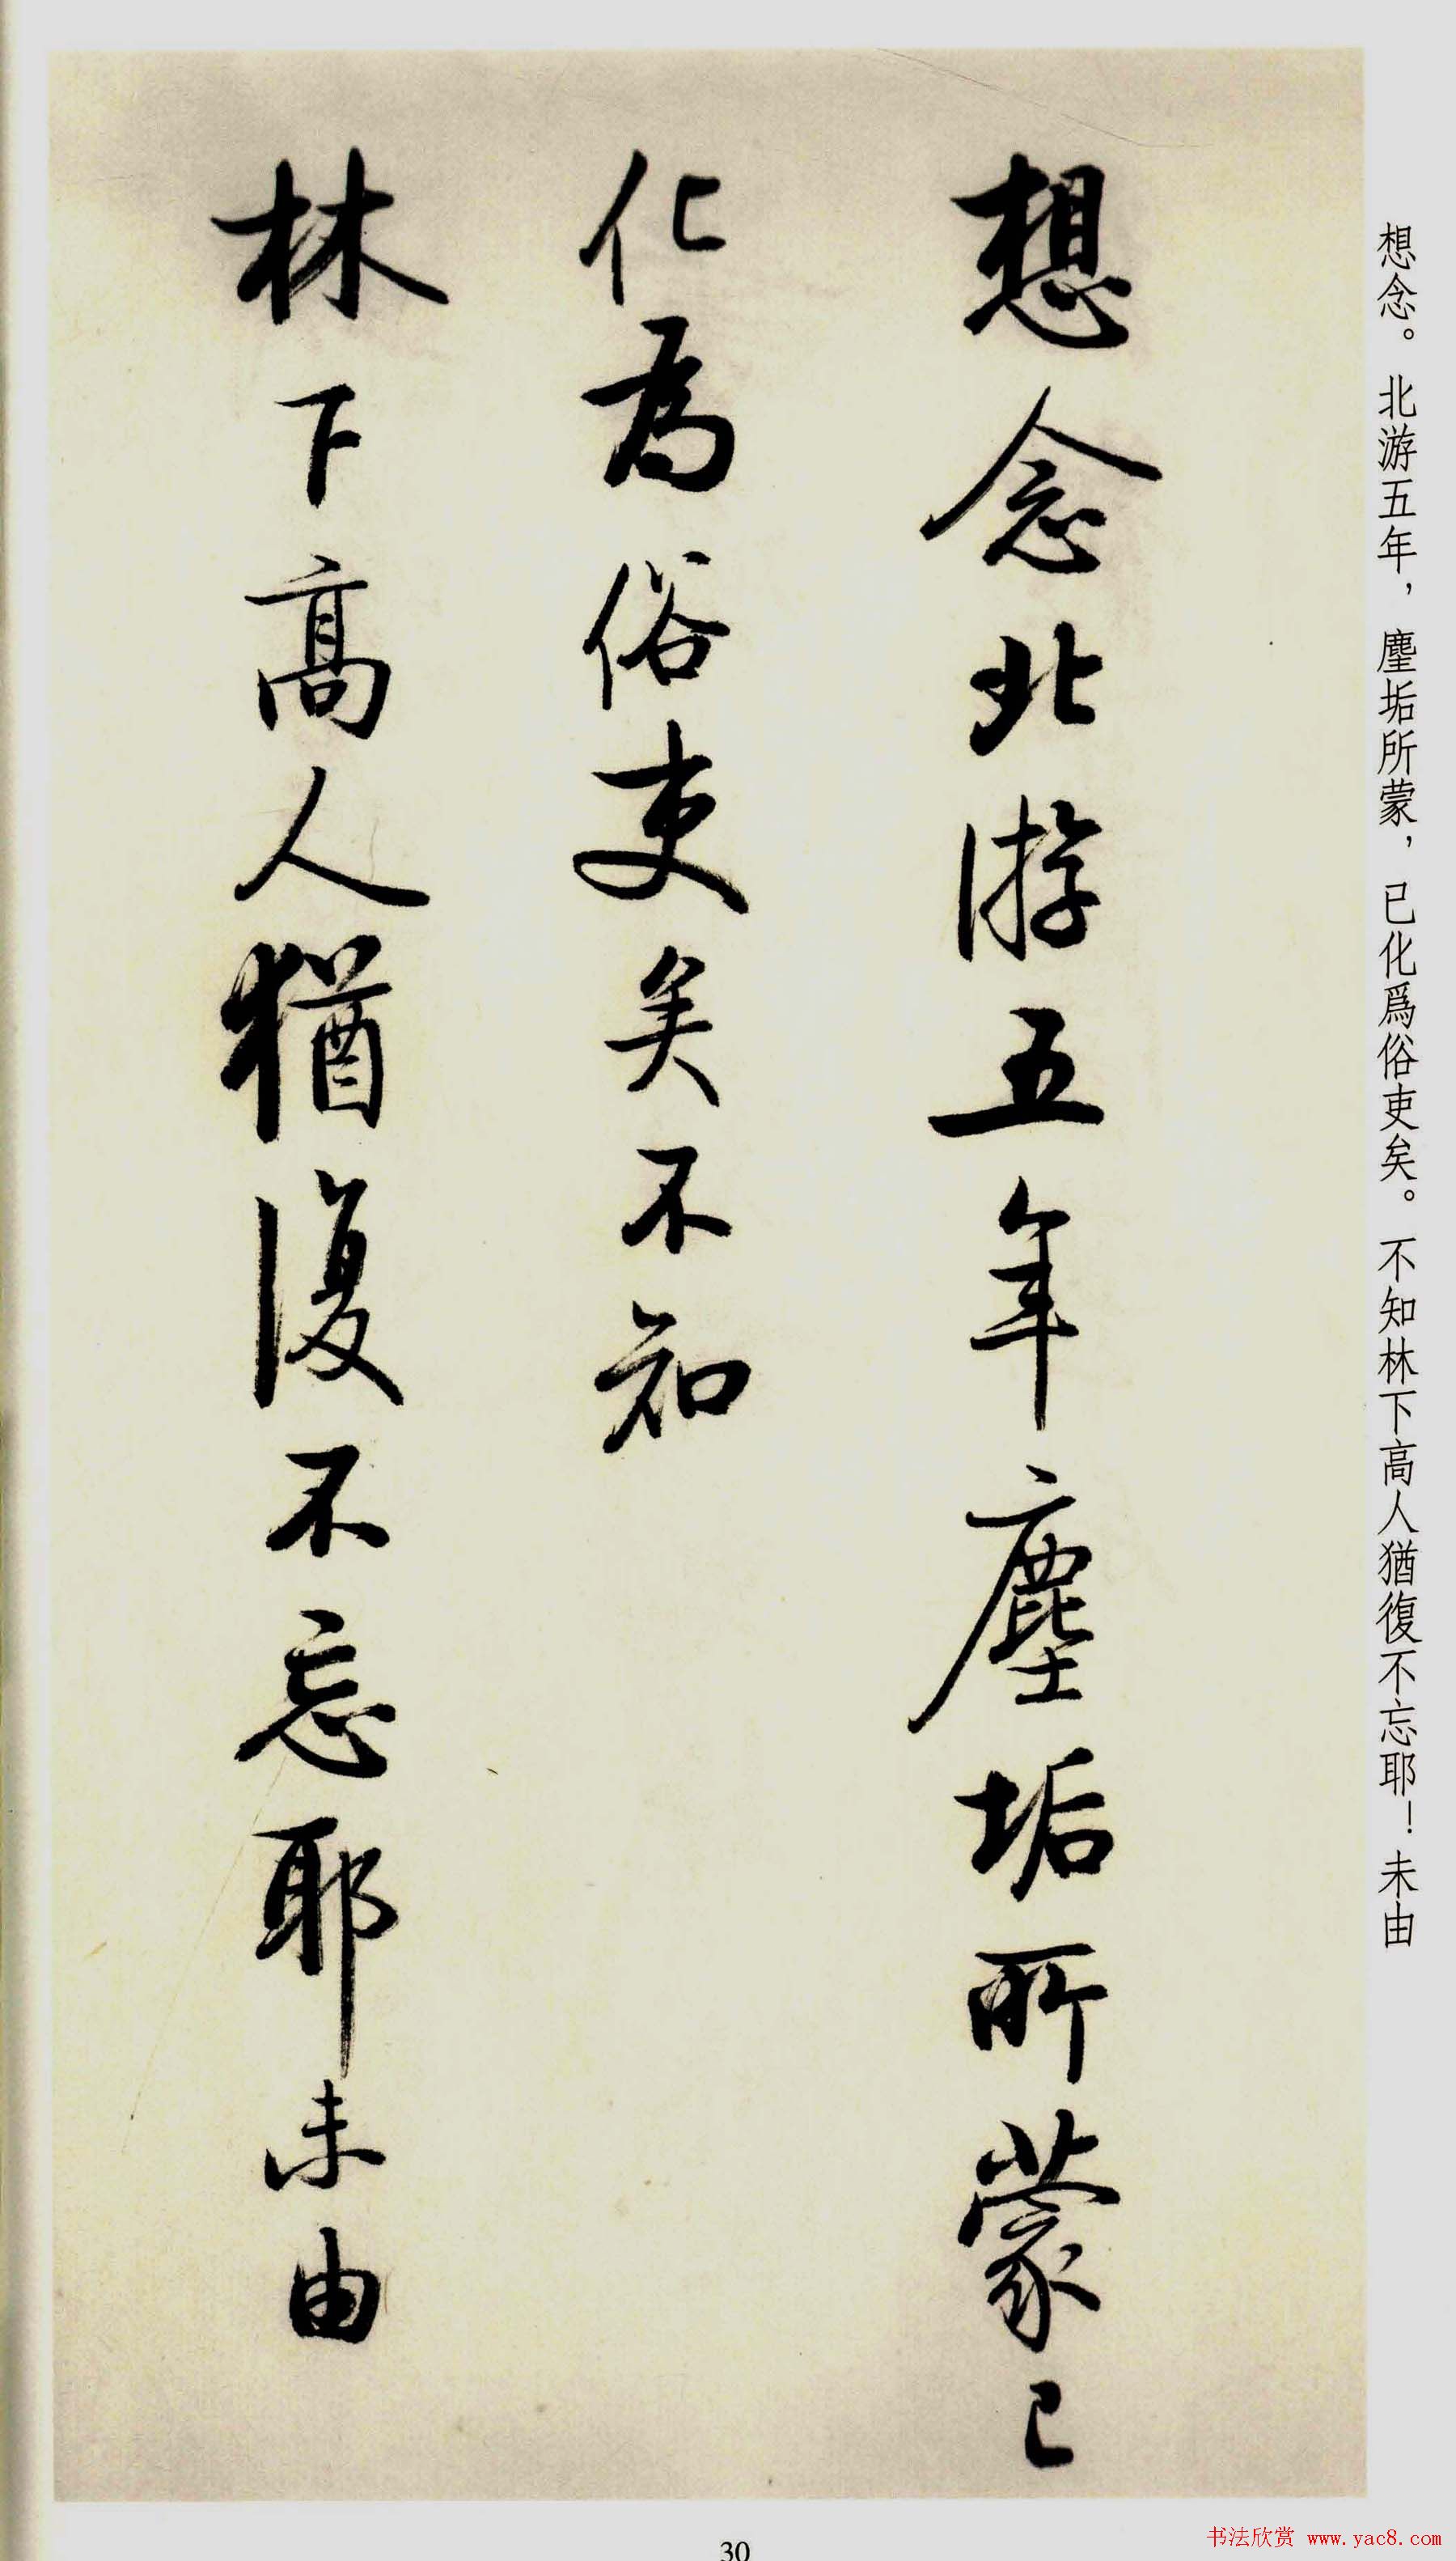 想念。北游五年，塵垢所蒙，已化爲俗吏矣。不知林下高人猶復不忘耶！未由
想念北游五年塵垢所蒙已
化為俗吏矣不知
林下高人猶復不忘耶未由
30
书法欣赏 www.yac8.com